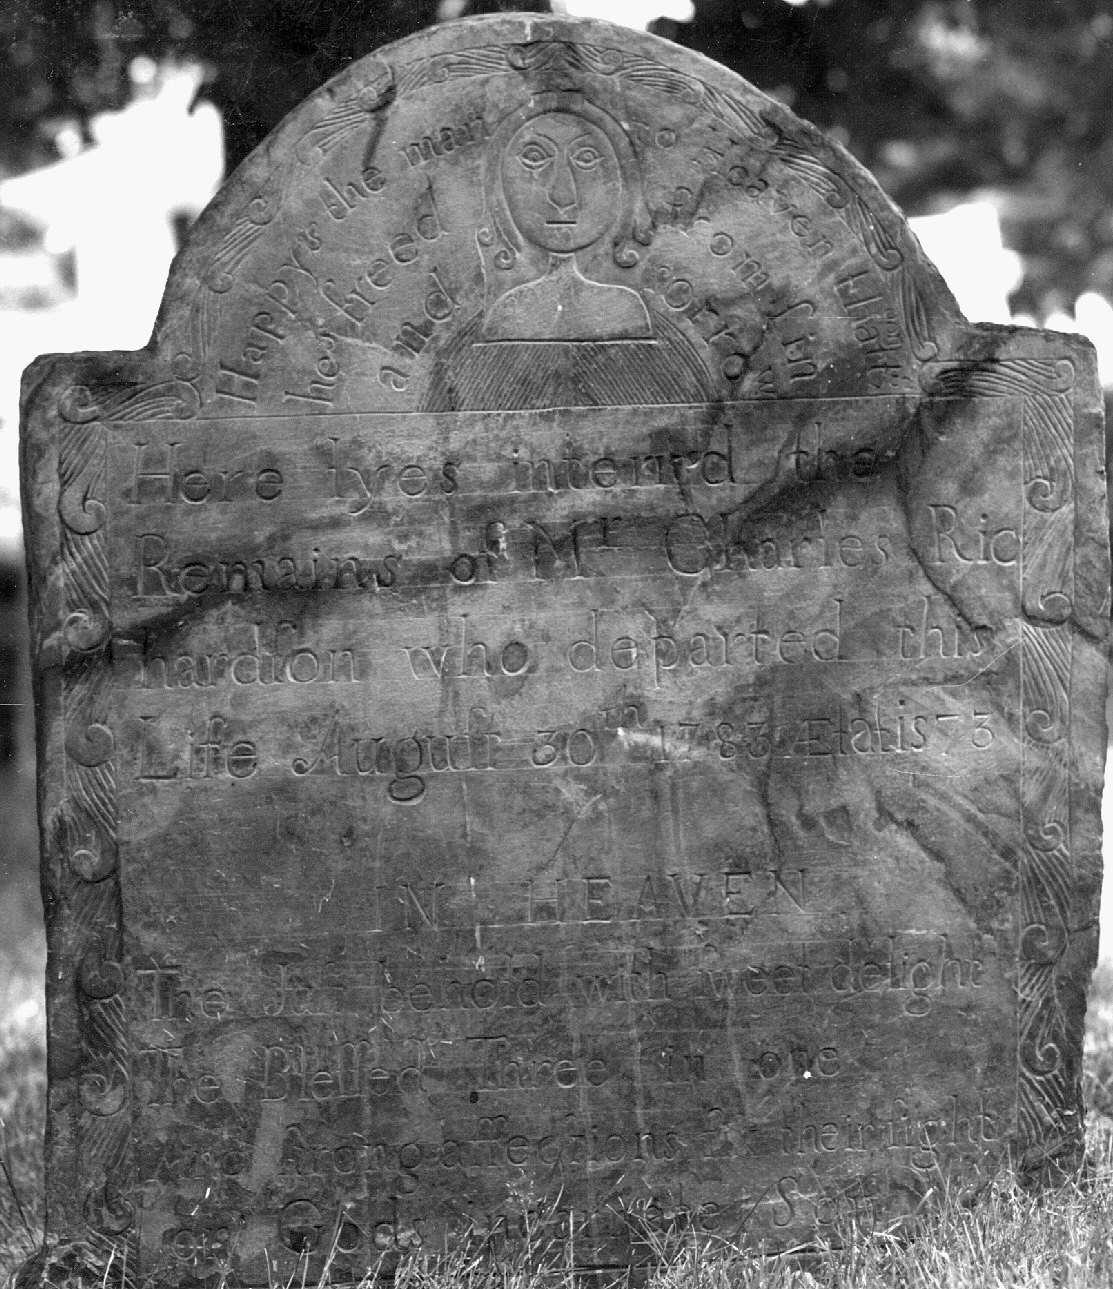 Happy's the man to Heaven Hath
he's freed from sin
and sorrow
Here lyes interr'd the
Remains of Mr Charles Ric
hardſon who departed this
Life Auguſt 30th 1783 Ætatis 73
IN HEAVEN
The Juſt behold with ſweet delight
The Bleſſed Three in one
And ſtrong affections fix their ſight
on Gods incarnate Son